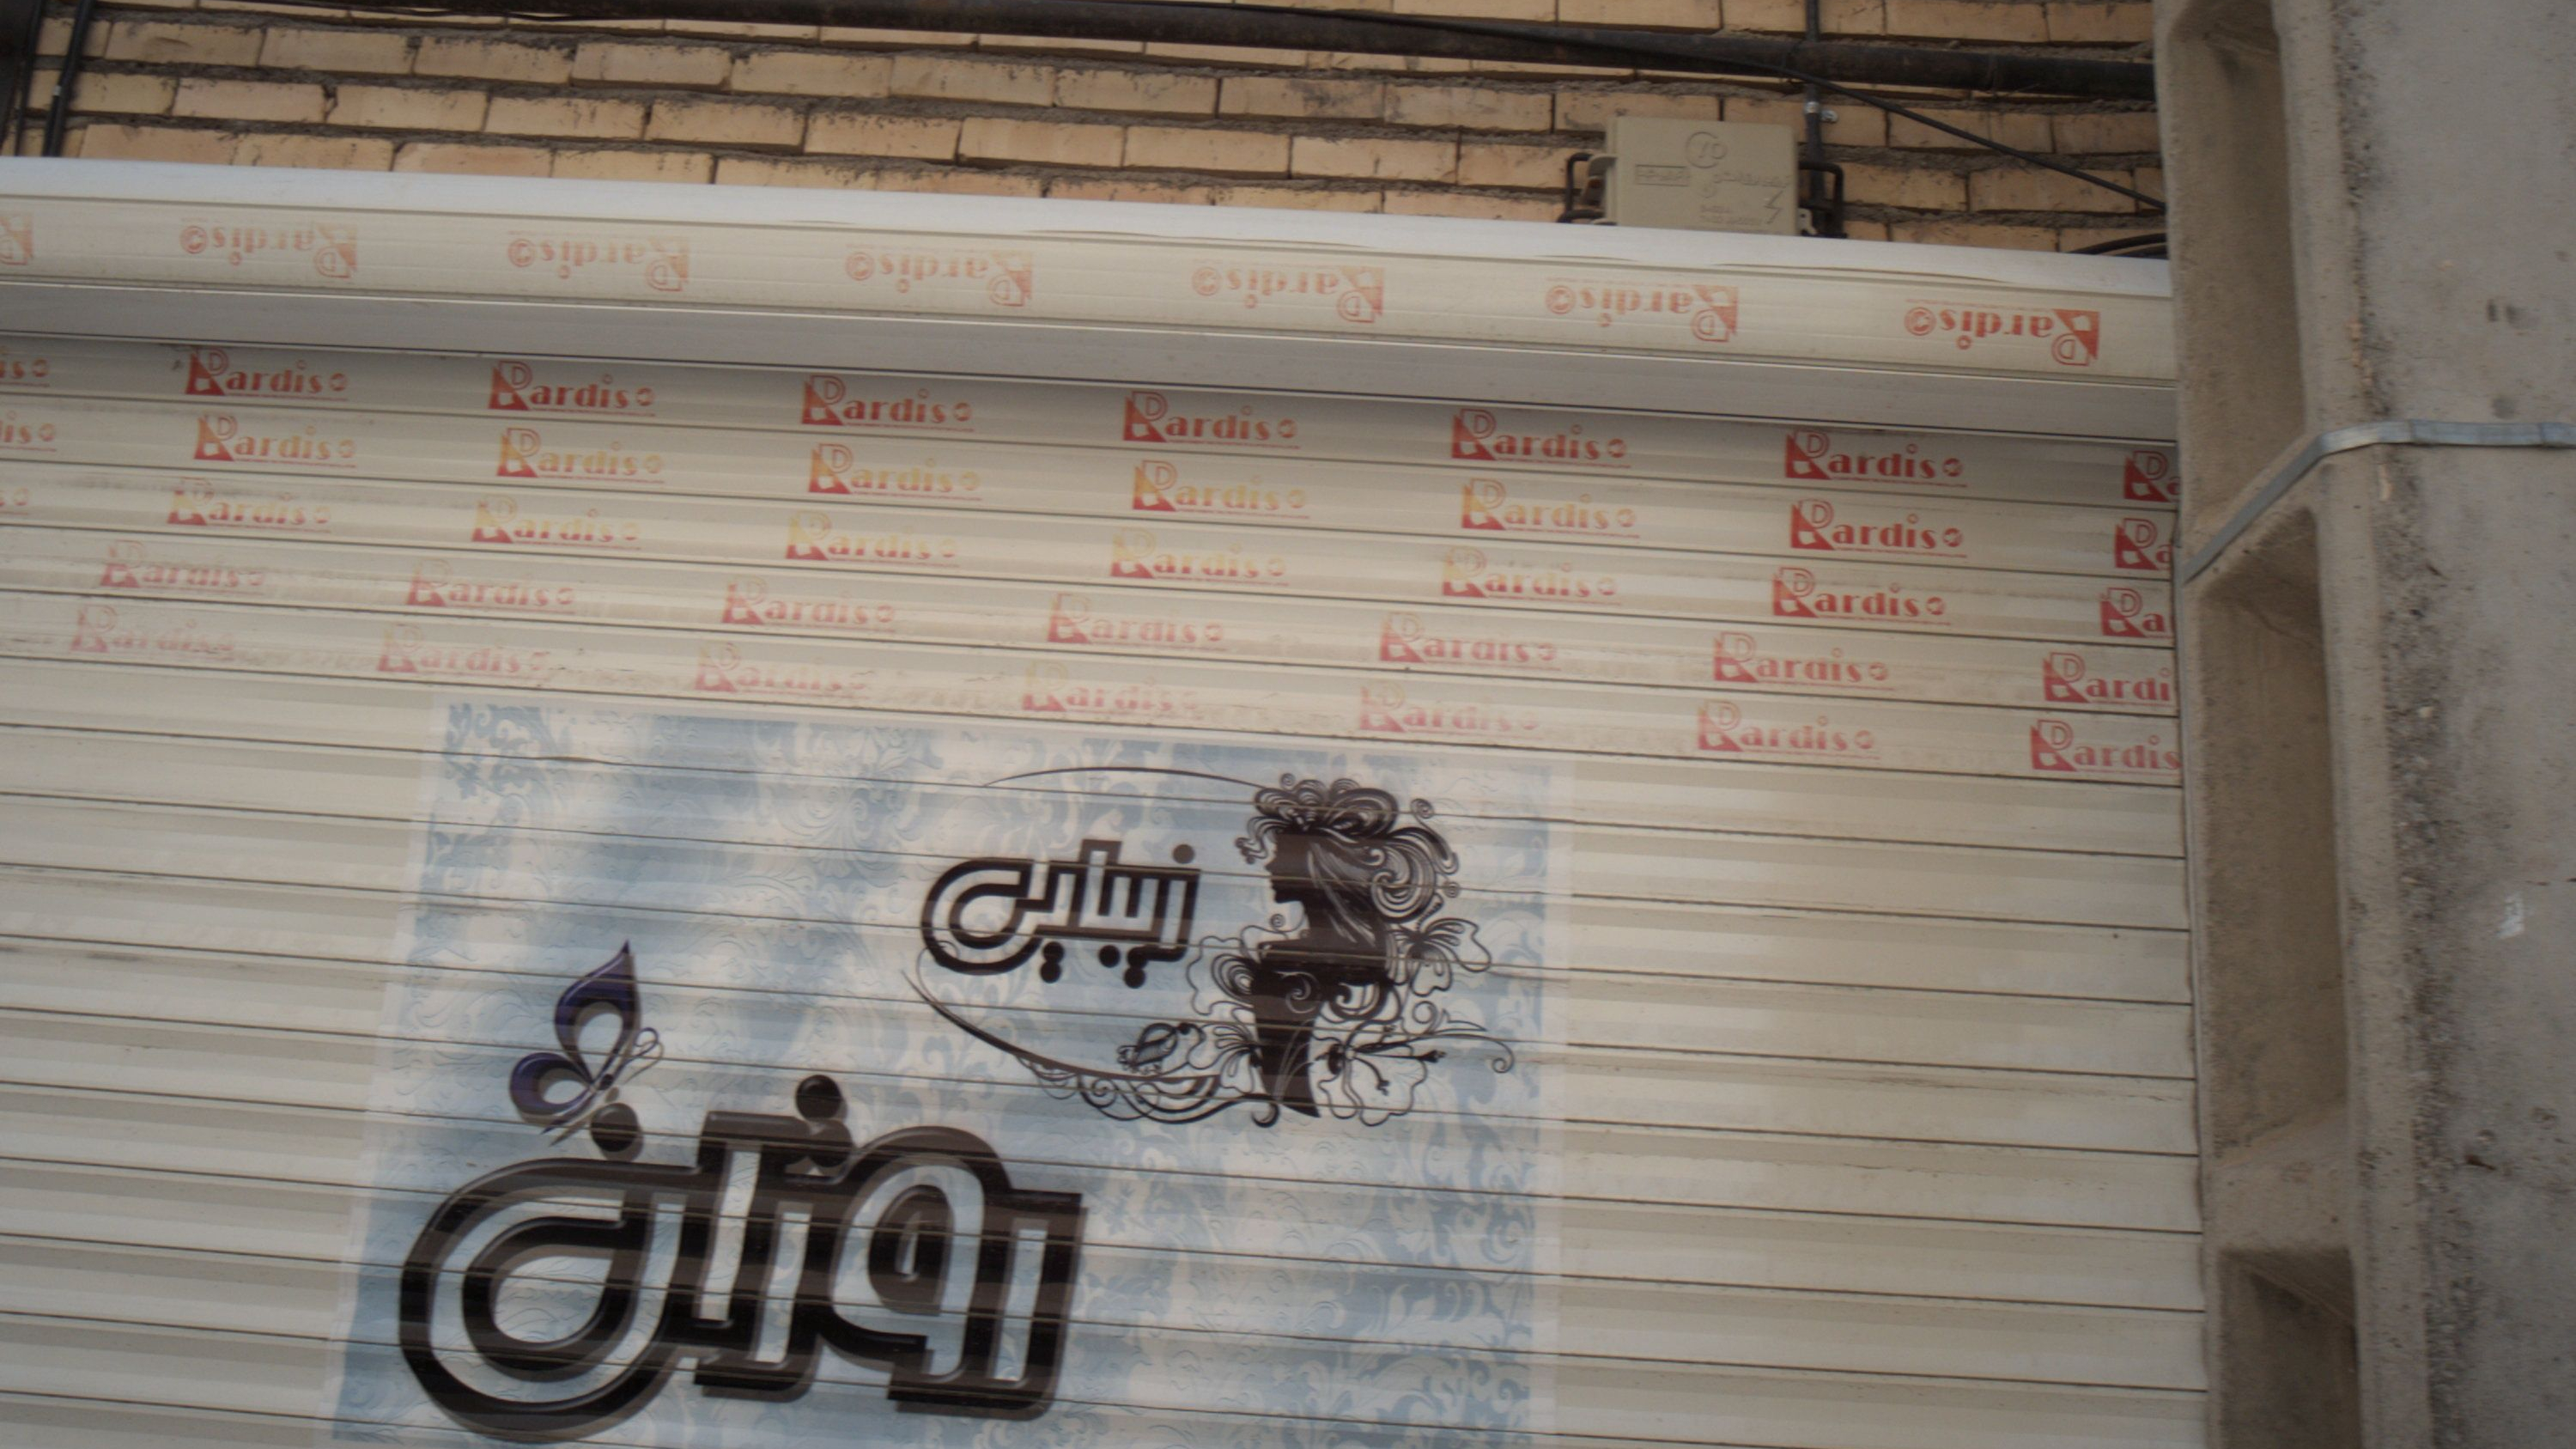 Pardis Pardis Pardis Pardis Pardis Pardis
is Pardis Pardis Pardis Pardis Pardis Pardis Pa
is Pardis Pardis Pardis Pardis Pardis Pardis Pa
Pardis Pardis Pardis Pardis Pardis Pardis Pa
Pardis Pardis Pardis Pardis Pardis Pardis Pardi
Pardis Pardis Pardis Pardis Pardis Pardis Pardis
زیبایی
روژان